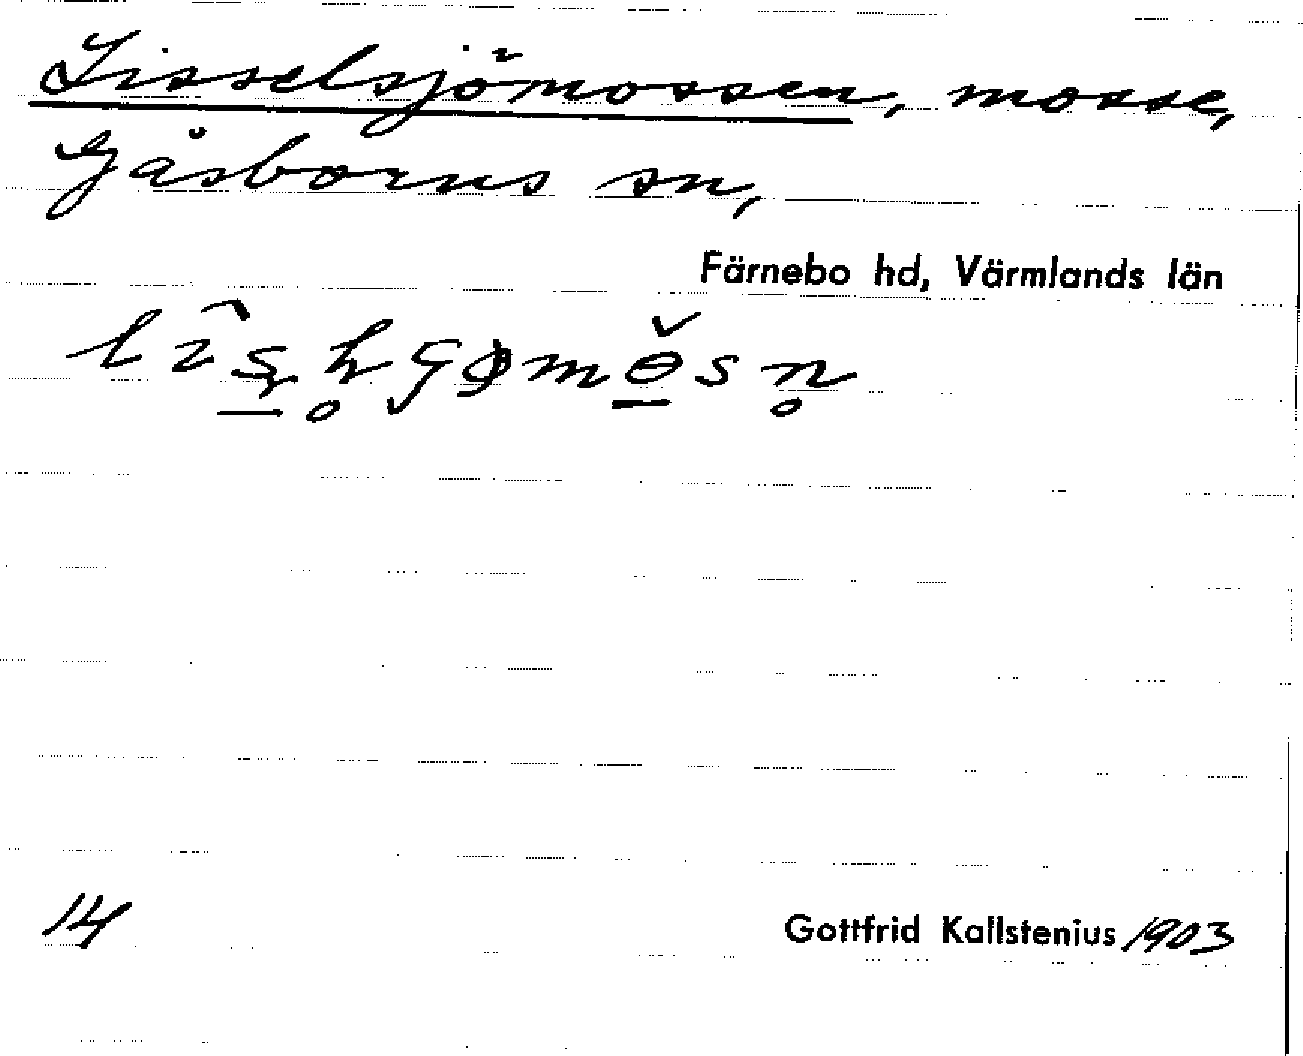 Lisselsjömossen, mosse,
Gåsborns sn,
Färnebo hd, Värmlands län
14
Gottfrid Kallstenius 1903